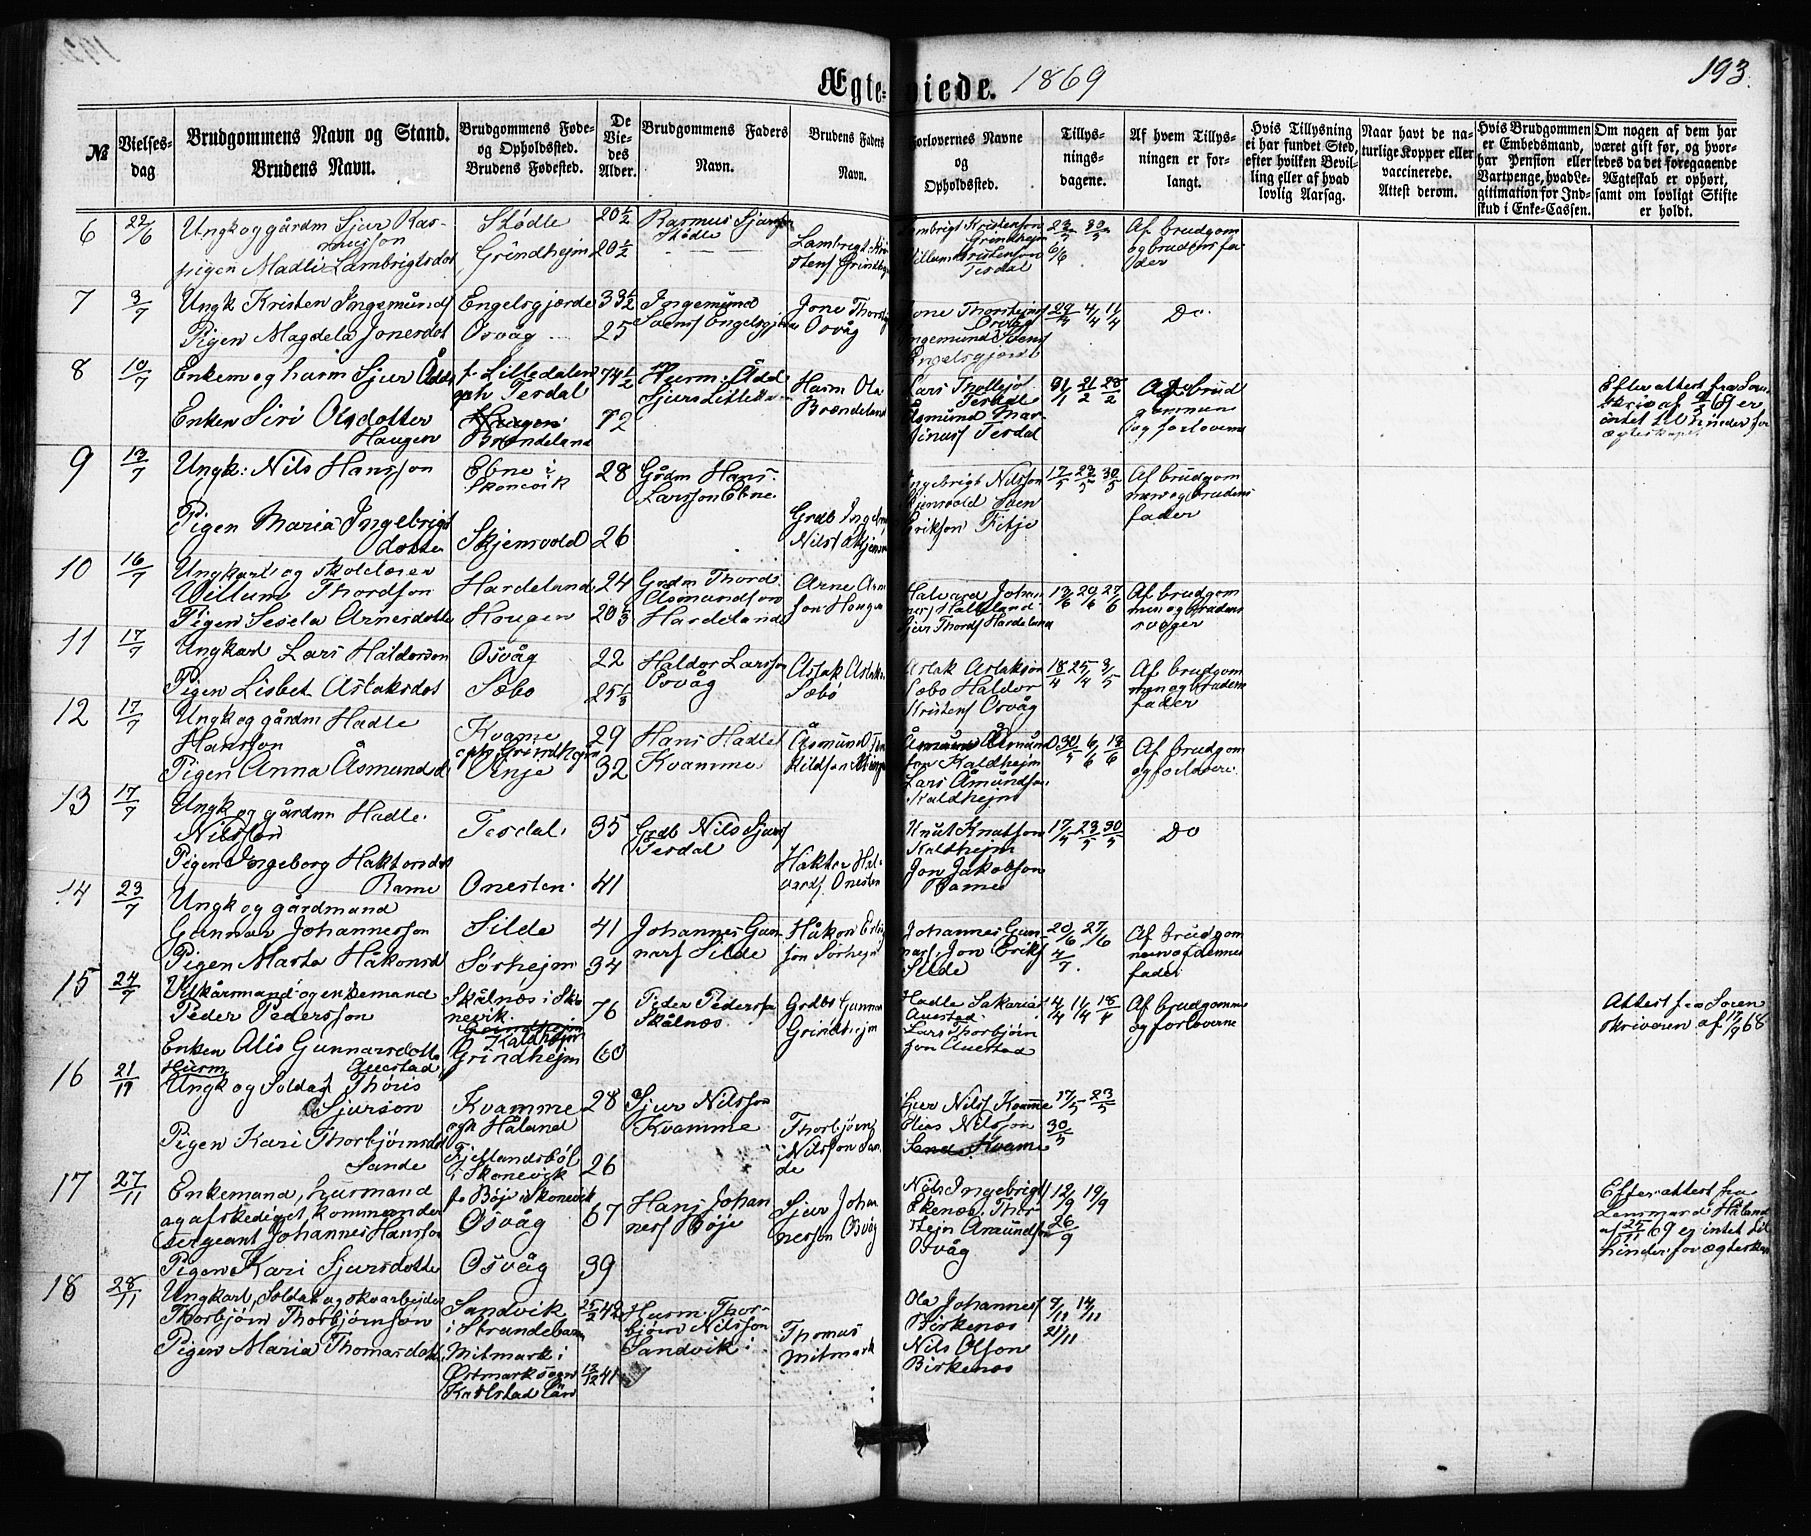 193.
Ægte-viede. 1869
№
Vielses-
dag
Brudgommens Navn og Stand.
Brudens Navn.
Brudgommens Føde-
og Opholdssted.
Brudens Fødested.
De
Vie-
des
Alder.
Brudgommens Faders
Navn.
Brudens Faders
Navn.
Forlovernes Navne
og
Opholdssted.
Tillys-
nings-
dagene.
Af hvem Tillys-
ningen er for-
langt.
Hvis Tillysning
ei har fundet Sted,
efter hvilken Bevil-
ling eller af hvad
lovlig Aarsag.
Naar havt de na-
turlige Kopper eller
vaccinerede.
Attest derom.
Hvis Brudgommen
er Embedsmand,
har Pension eller
Vartpenge, hvad Le-
gitimation for Ind-
skud i Enke-Cassen.
Om nogen af dem har
været gift før, og hvor-
ledes da det foregaaende
Ægteskab er ophørt,
samt om lovligt Skifte
er holdt.
6 22/6
Ungk og gårdm Sjur Ras-
musson
pigen Madli Lambrigtsdot
Stødle
Grindhejm
20 1/2
20 1/2
Rasmus Sjursson
Stødle
Lambrigt Kri-
stens Grindhejm
Lambrigt Kristenson
Grindhejm
Villum Kristenson
Tesdal
23/5 30/5
6/6
Af brudgom
og brudens fa
der
7 3/7
Ungk Kristen Ingemunds
Pigen Magdela Jonesdot
Engelsgjerde
Osvåg
33 1/2
25
Ingemund
Svens Engelsgjerde
Jone Thorstejns
Osvåg
Jone Thorstejns
Osvåg
Ingemund Svens
Engelsgjerde
4/4 11/4
Do
8 10/7
Enkem og husm Sjur
Enken Siri Olsdotter
Haugen
f. Litledalen
oph Tesdal
Haugen
Brændeland
74 1/2
72
Husm
Sjurs Litleda
Husm Ola
Brændeland
Lars Thollejs
Tesdal
Åsmund Mag-
Tesdal
31/1 21/2 28/2
Af brud
gommen
og forloverne
Efter attest fra Soren
skriv af 69 er
intet til hinder for
ægteskapet
9 13/7
Ungk: Nils Hansson
Pigen Maria Ingebrigts
dotter
Ebne i
Skonevik
Skjensvold
28
26
Gårdm Hans
Larsson Ebne
Grdb Ingebr
Nils Skjensv
Ingebrigt Nilsson
Skjensvold Sven
Eriksson Fitje
17/5 23/5 30/5
Af brudgom
men og brudens
fader
10 16/7
Ungkarl og skolelærer
Villum Thordson
Pigen Sesela Arnesdotte
Hardeland
Hougen
24
20 1/3
Grdm Thord
Asmundson
Hardeland
Arne Arn
son Hougen
Halvard Johan
nes Halleland
Sjur Thords Hardeland
13/6 20/6 27/6
Af brudgom
men og brudens
svoger
11 17/7
Ungkarl Lars Haldorson
Pigen Lisbet Aslaksdot
Osvåg
Sæbo
22
25 1/3
Haldor Larsson
Osvåg
Aslak Aslaks
Sæbø
Aslak Aslakson
Sæbo Haldor
Kristens Osvåg
18/4 25/4 2/5
Af brudgom
men og brudens
fader
12 17/7
Ungk og gårdm Hadle
Hansson
Pigen Anna Åsmundsd
Kvame
oph Grindhejm
Ørnje
29
32
Hans Hadles
Kvamme
Åsmund
Åsmund Åsmund
son Kaldhejm
Lars Åmundson
Kaldhejm
30/5 6/6 13/6
Af brudgom
og forlovere
13 17/7
Ungk og gårdm Hadle
Nilsson
Pigen Ingeborg Haktorsdot
Rame
Tesdal
Onesten
35
41
Grdb Nils Sjurs
Tesdal
Haktor Hal-
vards. Onesten
Knut Knutson
Kaldhejm
Jon Jakobson
Rame
17/5 23/5 30/5
Do
14 23/7
Ungk og gårdmand
Gunnar Johannesson
Pigen Marta Håkonsd
Silde
Sørhejm
41
34
Johannes Gun
nars Silde
Håkon Erik
son Sørhejm
Johannes Gun-
nars, Jon Eriks
Silde
20/6 27/6
4/7
Af brudgom
men og dennes
fader
15 24/7
Vilkårsmand og enkemand
Peder Pedersson
Enken Alis Gunnarsdotte
Auestad
Skålnæs i Sko
nevik
Grindhejm
Kaldhejm
Grindhejm
76
60
Peder Pederson
Skålnæs
Grdb Gunnar
Grindhejm
Hadle Sakarias
Auestad
Lars Thorbjørn
son Auestad
4/4 11/4 18/4
Af brudgomme
og forloverne
Attest fra Soren
skriveren af 17/9 68
16 21/11
Husm
Ungk og Soldat Thøris
Sjurson
Pigen Kari Thorbjørnsdot
Sande
Kvamme
oph Håland
Fjellandsbøl
i Skonevik
28
26
Sjur Nilsson
Kvamme
Thorbjørn
Nilsson San
de
Sjur Nils Kvame
Elias Nilsson
Sande Kvame
17/5 23/5
30/5
17 27/11
Enkemand, husmand
og afskediget kommander
sergeant Johannes Hansson
Pigen Kari Sjursdotte
f. Bøje i Skonevik
Osvåg
Osvåg
67
39
Hans Johan
nes Bøje
Sjur Johan
nesson Osvåg
Nils Ingebrigt
Ekenæs, Thor
stejn Amundson
Osvåg
12/9 19/9
26/9
Efter attest fra
Lensmand Håland
af 25/11 69 er intet til
hinder for ægteskap
18 28/11
Ungkarl, Soldat og skoarbejder
Thorbjørn Thorbjørnson
Pigen Maria Thomasdot
Sandvik
i Strandebarm
Mitmark i
Østmark sogn
Karlstad län
25/2 42
13/12 41
Husm. Thor-
bjørn Nilsson
Sandvik i
Thomas
Mitmark
Ola Johannes
Birkenæs
Nils Olson
Birkenæs
7/11 14/11
21/11